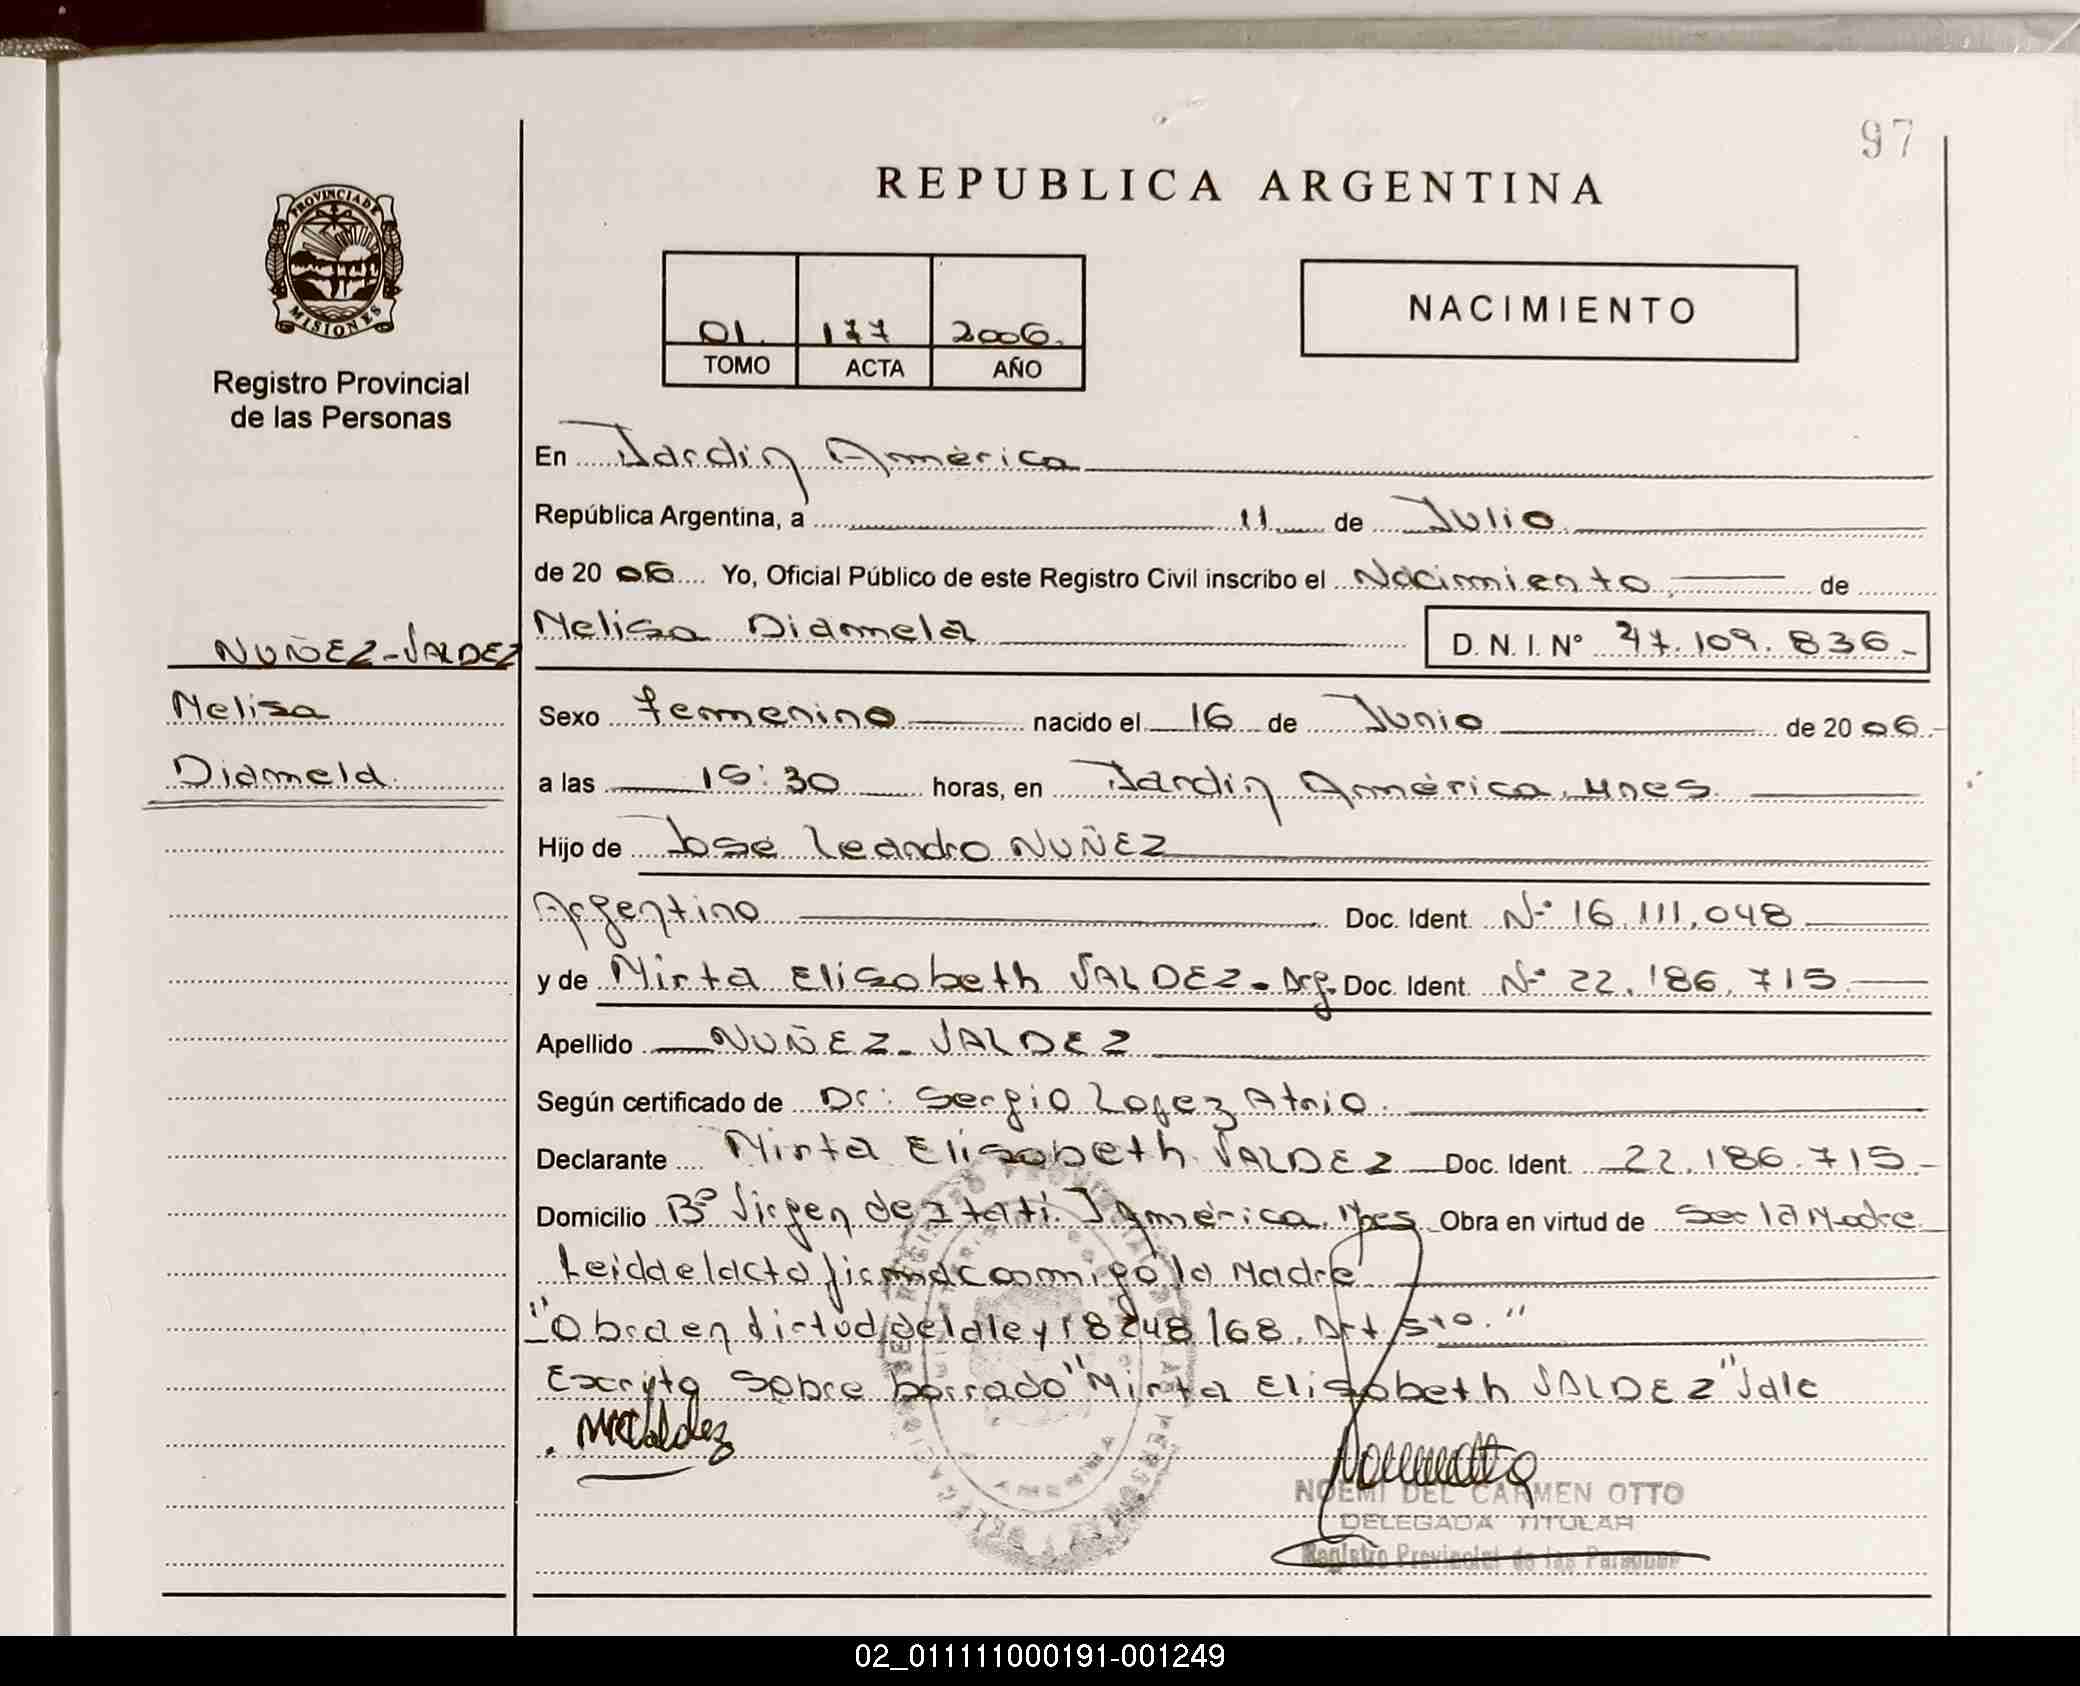 97
REPUBLICA ARGENTINA
PROVINCIA DE
MISIONES
Registro Provincial
de las Personas
01. 177 2006.
TOMO ACTA AÑO
NACIMIENTO
En Jardín América
República Argentina, a 11 de Julio
de 20 06 Yo, Oficial Público de este Registro Civil inscribo el Nacimiento, de
Melisa Diamela D. N. I. N° 47.109.836-
NUÑEZ-VALDEZ
Melisa
Diamela
Sexo femenino nacido el 16 de Junio de 20 06.-
a las 15:30 horas, en Jardín América, Mnes
Hijo de José Leandro NUÑEZ
Argentino Doc. Ident. N° 16.111.048
y de Mirta Elisabeth VALDEZ - Arg. Doc. Ident. N° 22.186.715
Apellido NUÑEZ-VALDEZ
Según certificado de Dr: Sergio Lopez Atrio.
Declarante Mirta Elisabeth VALDEZ Doc. Ident. 22.186.715-
Domicilio B° Virgen de Itatí. J América. Mnes Obra en virtud de ser la Madre.
Leida el acta firma conmigo la Madre
"Obra en virtud de la ley 18248/68. Art 5to."
Escrito sobre borrado "Mirta Elisabeth VALDEZ" Vale
NOEMI DEL CARMEN OTTO
DELEGADA TITULAR
Registro Provincial de las Personas
02_011111000191-001249